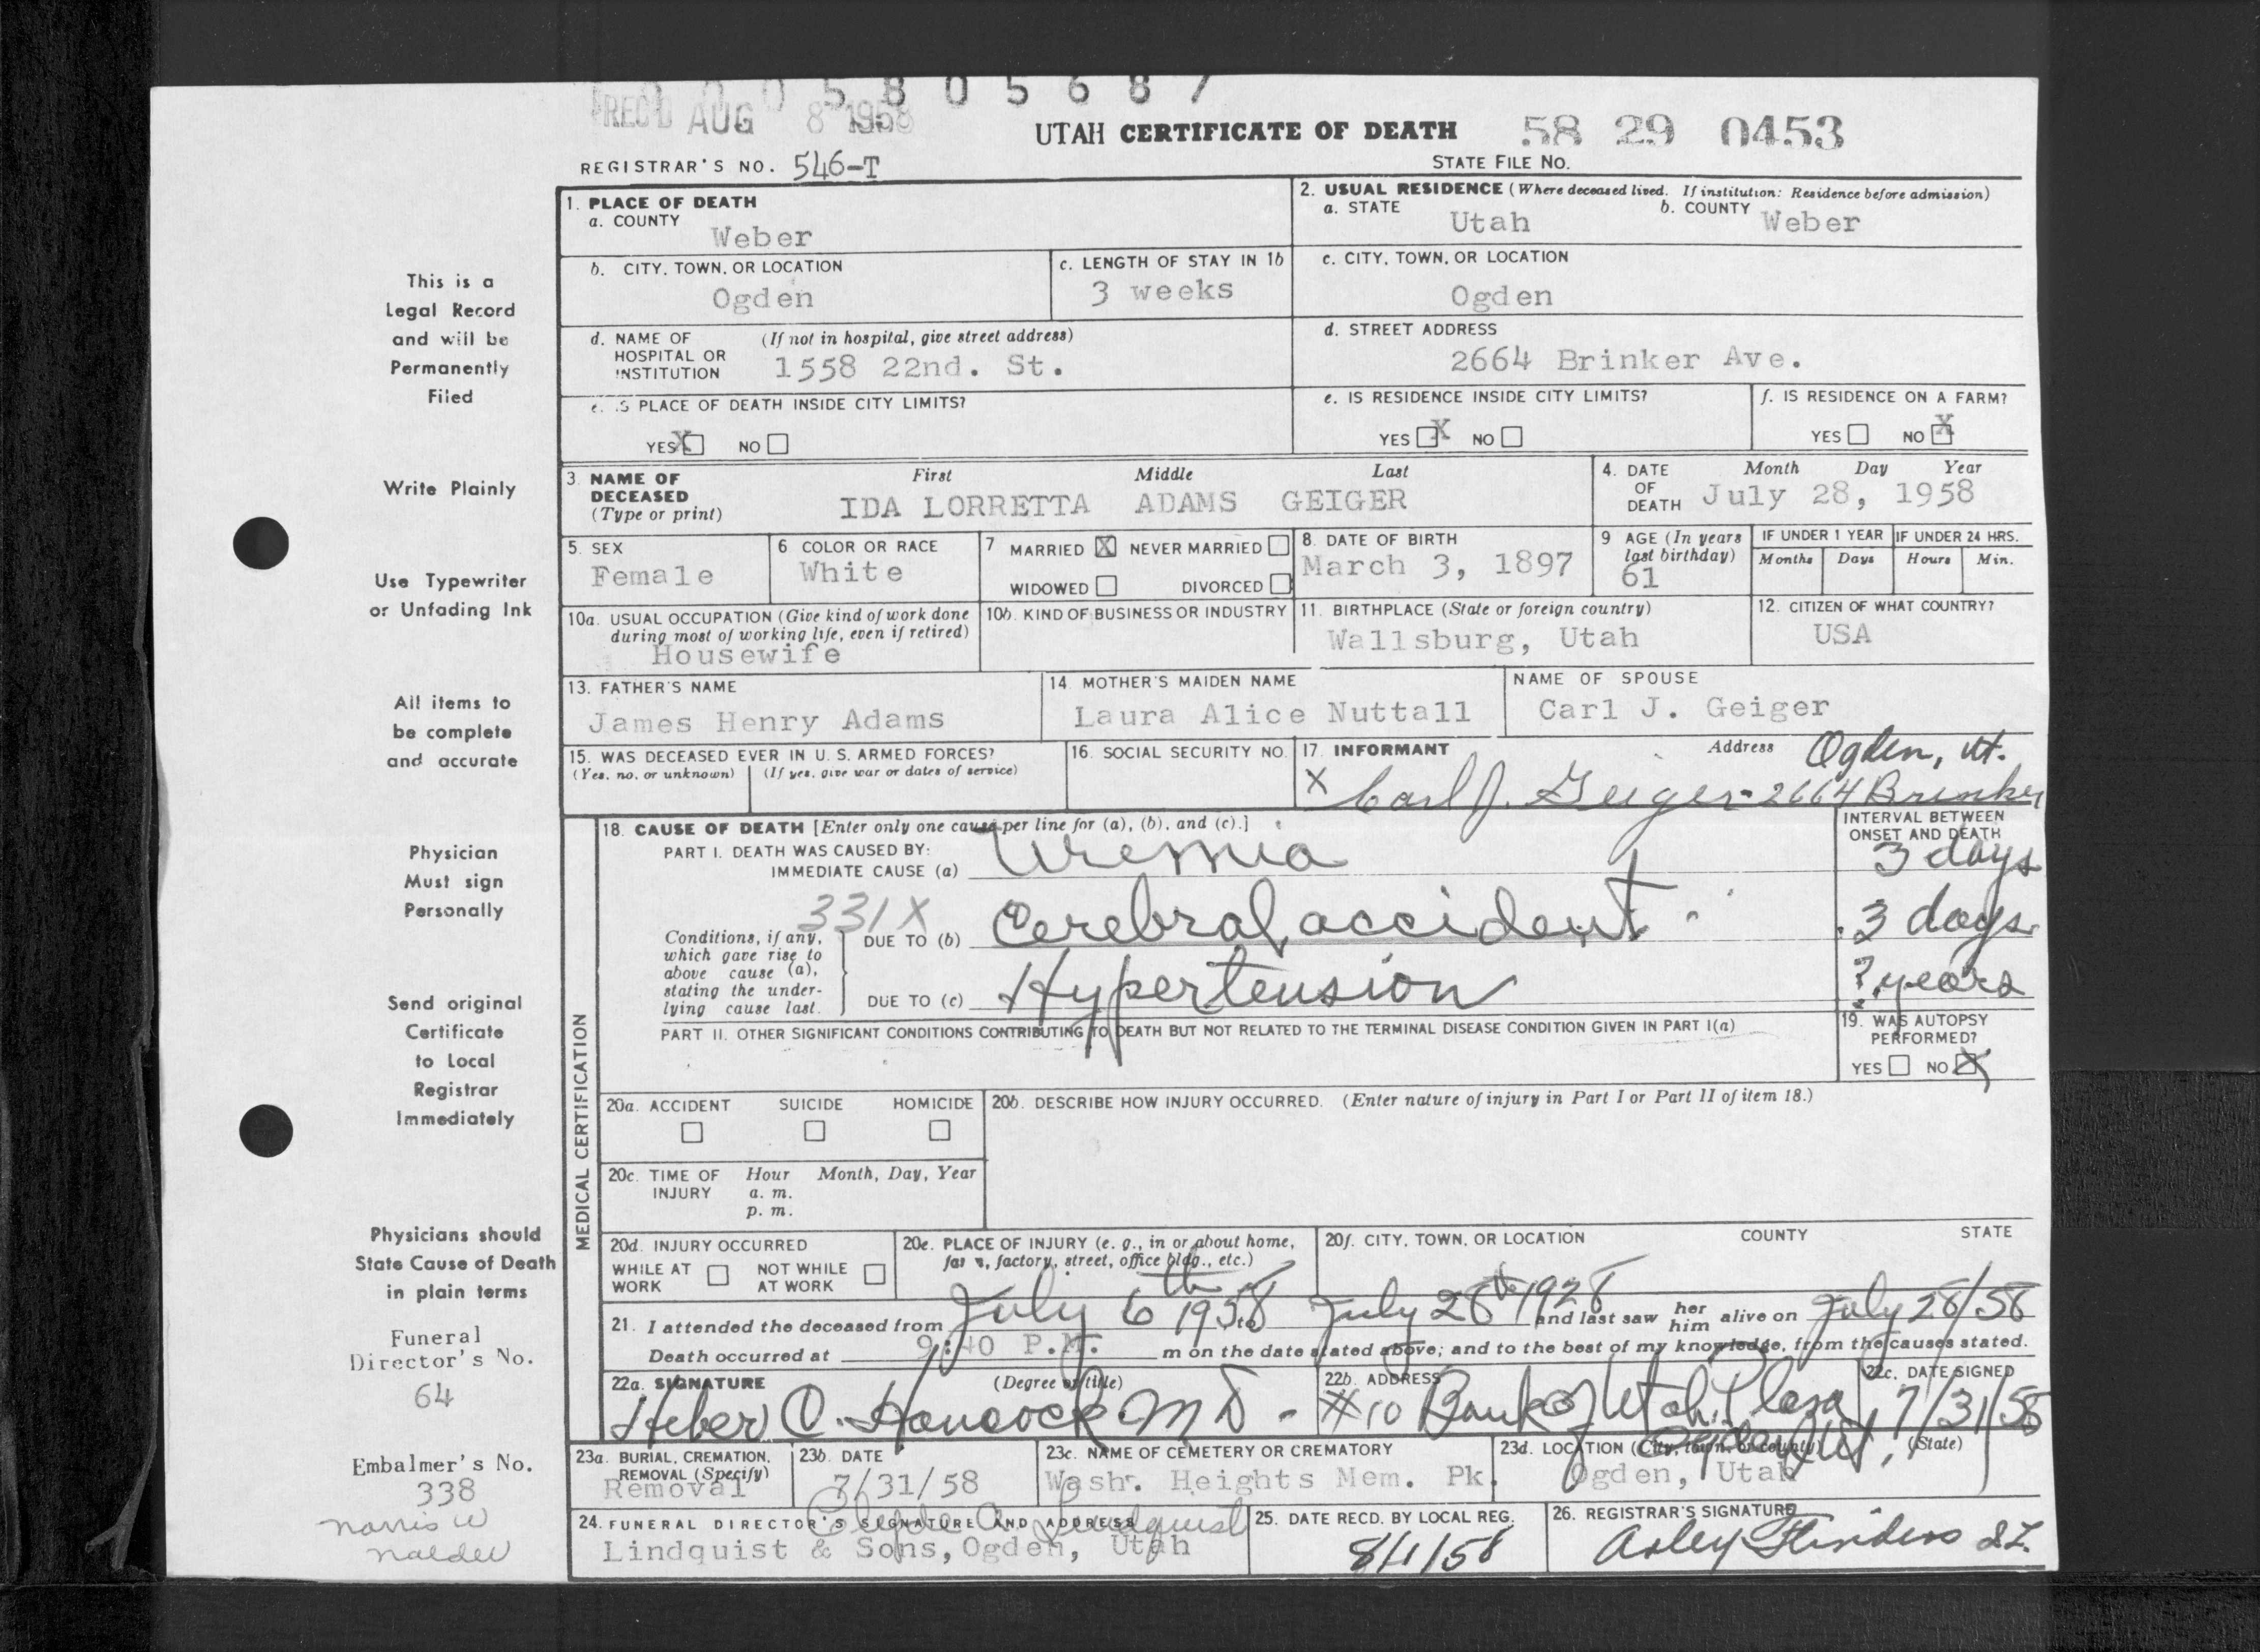 0 0 0 5 8 0 5 6 8 7
REC'D AUG 8 1958
UTAH CERTIFICATE OF DEATH 58 29 0453
REGISTRAR'S NO. 546-T
STATE FILE NO.
1. PLACE OF DEATH
a. COUNTY
Weber
2. USUAL RESIDENCE (Where deceased lived. If institution: Residence before admission)
a. STATE Utah b. COUNTY Weber
b. CITY, TOWN, OR LOCATION
Ogden
c. LENGTH OF STAY IN 1b
3 weeks
c. CITY, TOWN, OR LOCATION
Ogden
d. NAME OF (If not in hospital, give street address)
HOSPITAL OR
INSTITUTION 1558 22nd. St.
d. STREET ADDRESS
2664 Brinker Ave.
e. IS PLACE OF DEATH INSIDE CITY LIMITS?
YES X NO
e. IS RESIDENCE INSIDE CITY LIMITS?
YES X NO
f. IS RESIDENCE ON A FARM?
YES NO X
3. NAME OF First Middle Last
DECEASED
(Type or print) IDA LORRETTA ADAMS GEIGER
4. DATE Month Day Year
OF
DEATH July 28, 1958
5. SEX
Female
6 COLOR OR RACE
White
7 MARRIED X NEVER MARRIED
WIDOWED DIVORCED
8. DATE OF BIRTH
March 3, 1897
9 AGE (In years
last birthday)
61
IF UNDER 1 YEAR IF UNDER 24 HRS.
Months Days Hours Min.
10a. USUAL OCCUPATION (Give kind of work done
during most of working life, even if retired)
Housewife
10b. KIND OF BUSINESS OR INDUSTRY
11. BIRTHPLACE (State or foreign country)
Wallsburg, Utah
12. CITIZEN OF WHAT COUNTRY?
USA
13. FATHER'S NAME
James Henry Adams
14 MOTHER'S MAIDEN NAME
Laura Alice Nuttall
NAME OF SPOUSE
Carl J. Geiger
15. WAS DECEASED EVER IN U. S. ARMED FORCES?
(Yes, no, or unknown) (If yes, give war or dates of service)
16. SOCIAL SECURITY NO.
17. INFORMANT Address Ogden, Ut.
X Carl J. Geiger - 2664 Brinker
MEDICAL CERTIFICATION
18. CAUSE OF DEATH [Enter only one cause per line for (a), (b), and (c).]
PART I. DEATH WAS CAUSED BY:
IMMEDIATE CAUSE (a) Uremia
INTERVAL BETWEEN
ONSET AND DEATH
3 days
331X
Conditions, if any,
which gave rise to
above cause (a),
stating the under-
lying cause last.
DUE TO (b) Cerebral accident
3 days
DUE TO (c) Hypertension
? years
PART II. OTHER SIGNIFICANT CONDITIONS CONTRIBUTING TO DEATH BUT NOT RELATED TO THE TERMINAL DISEASE CONDITION GIVEN IN PART I(a)
19. WAS AUTOPSY
PERFORMED?
YES NO X
20a. ACCIDENT SUICIDE HOMICIDE
20b. DESCRIBE HOW INJURY OCCURRED. (Enter nature of injury in Part I or Part II of item 18.)
20c. TIME OF Hour Month, Day, Year
INJURY a. m.
p. m.
20d. INJURY OCCURRED
WHILE AT WORK NOT WHILE AT WORK
20e. PLACE OF INJURY (e. g., in or about home,
farm, factory, street, office bldg., etc.)
20f. CITY, TOWN, OR LOCATION COUNTY STATE
21. I attended the deceased from July 6th 1958 to July 28th 1928 and last saw her him alive on July 28/58
Death occurred at 9:40 P.M. m on the date stated above; and to the best of my knowledge, from the causes stated.
22a. SIGNATURE (Degree or title)
Heber C. Hancock MD -
22b. ADDRESS
#10 Bank of Utah Plaza
Ogden, Ut.
22c. DATE SIGNED
7/31/58
23a. BURIAL, CREMATION,
REMOVAL (Specify)
Removal
23b. DATE
7/31/58
23c. NAME OF CEMETERY OR CREMATORY
Wash. Heights Mem. Pk.
23d. LOCATION (City, town, or county) (State)
Ogden, Utah
24. FUNERAL DIRECTOR'S SIGNATURE AND ADDRESS
Clyde A. Lindquist
Lindquist & Sons, Ogden, Utah
25. DATE RECD. BY LOCAL REG.
8/1/58
26. REGISTRAR'S SIGNATURE
Arley Flinders
This is a
Legal Record
and will be
Permanently
Filed
Write Plainly
Use Typewriter
or Unfading Ink
All items to
be complete
and accurate
Physician
Must sign
Personally
Send original
Certificate
to Local
Registrar
Immediately
Physicians should
State Cause of Death
in plain terms
Funeral
Director's No.
64
Embalmer's No.
338
Norris W
Nalder